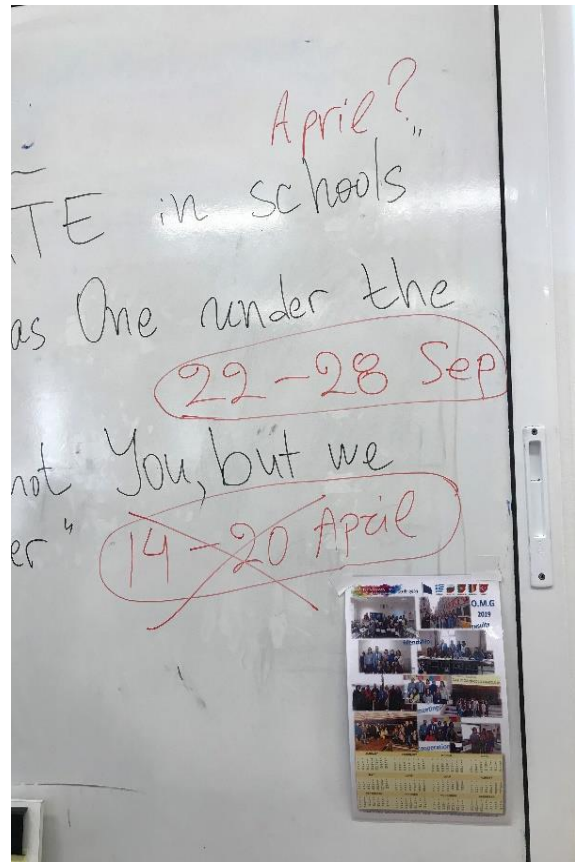 April?
TE in schools"
as One under the
22-28 Sep
not You, but we
er"
14-20 April
O.M.G
2019
results
meetings